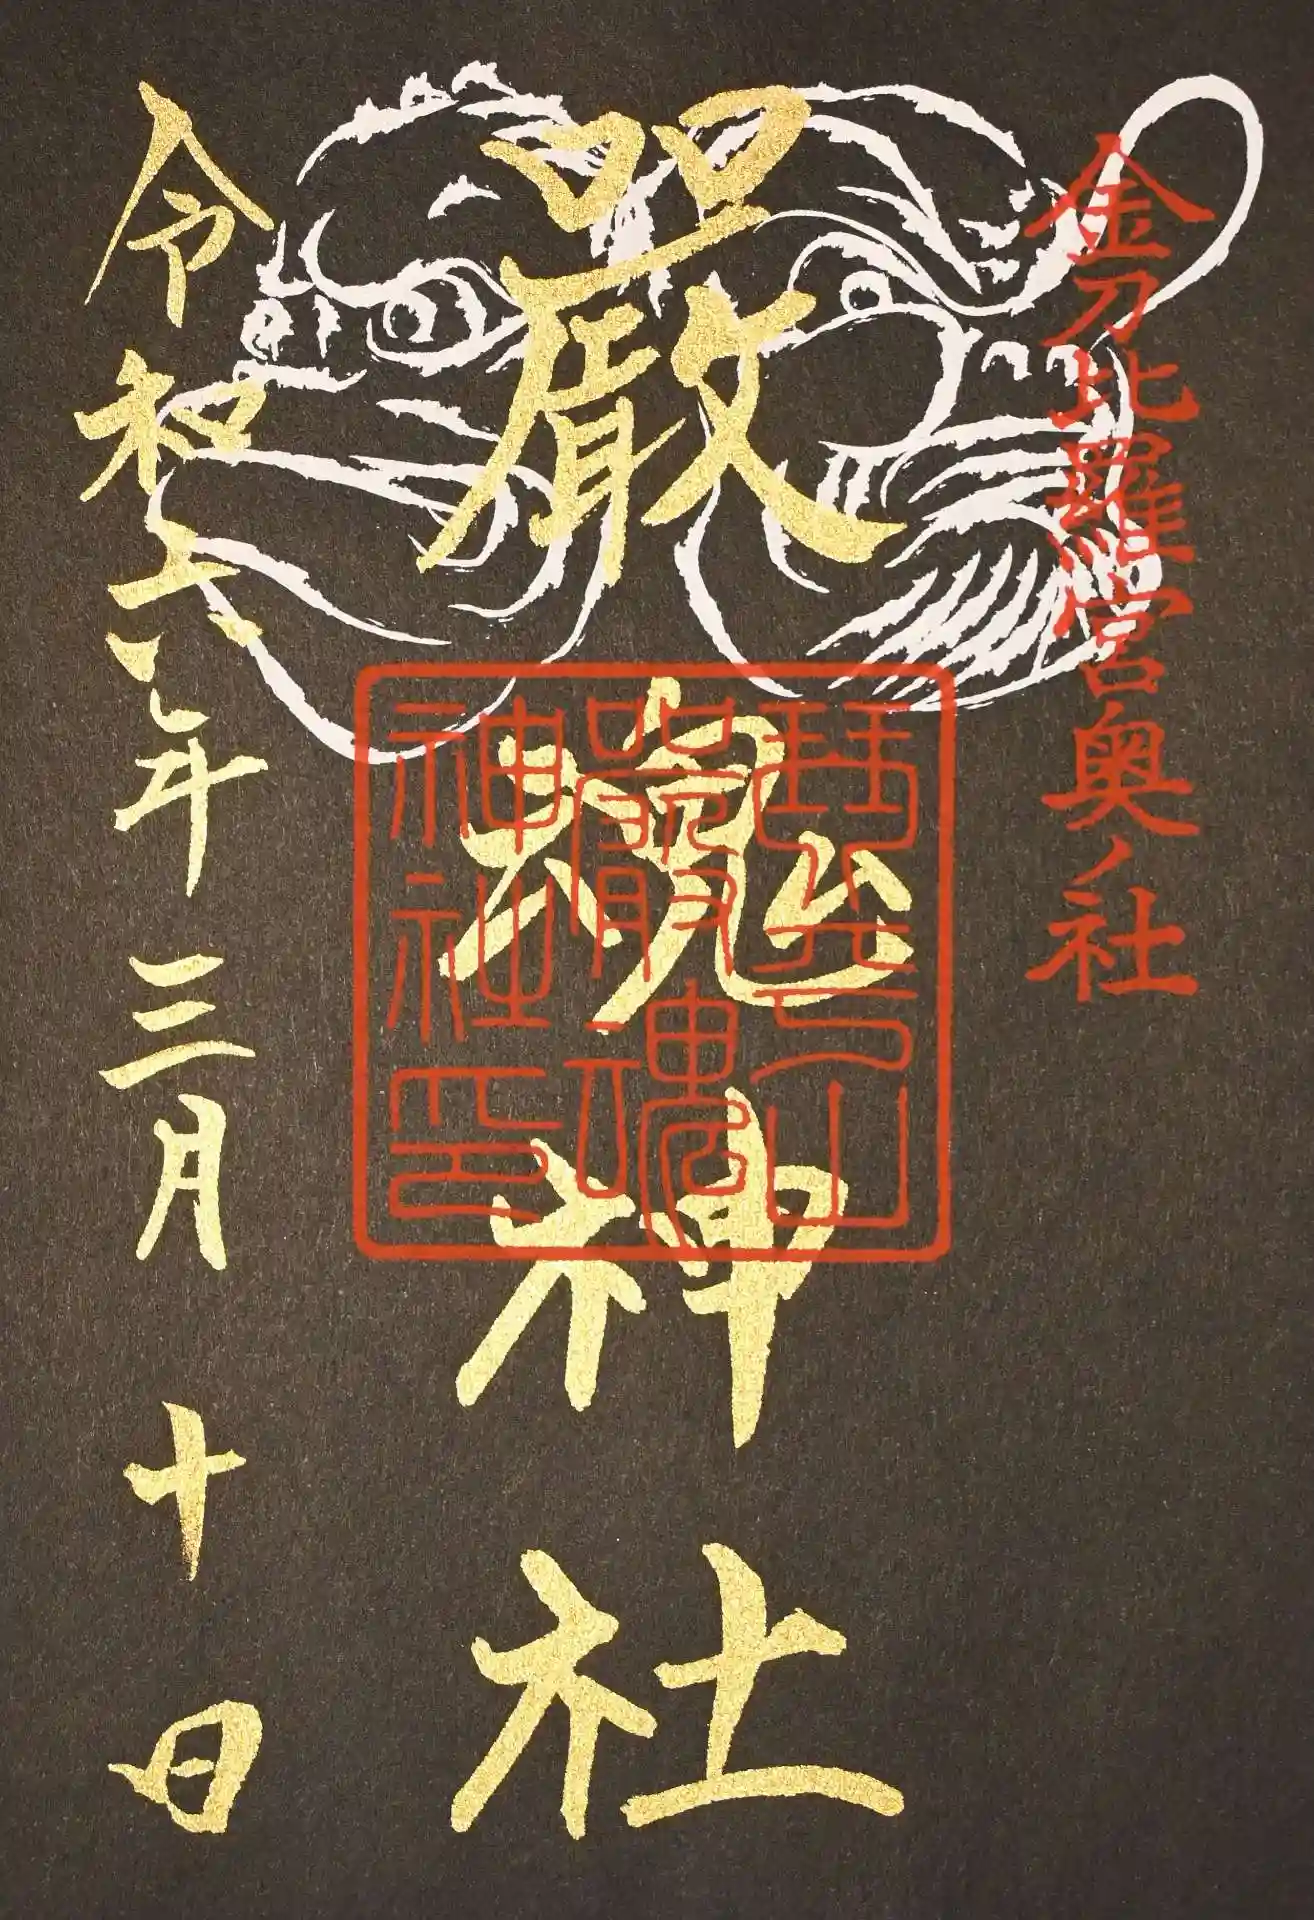 金刀比羅宮奥ノ社
嚴魂神社
琴平山
嚴魂
神社印
令和六年三月十日